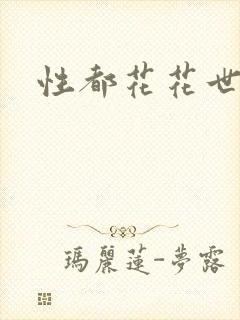 性都花花世
瑪麗蓮-夢露